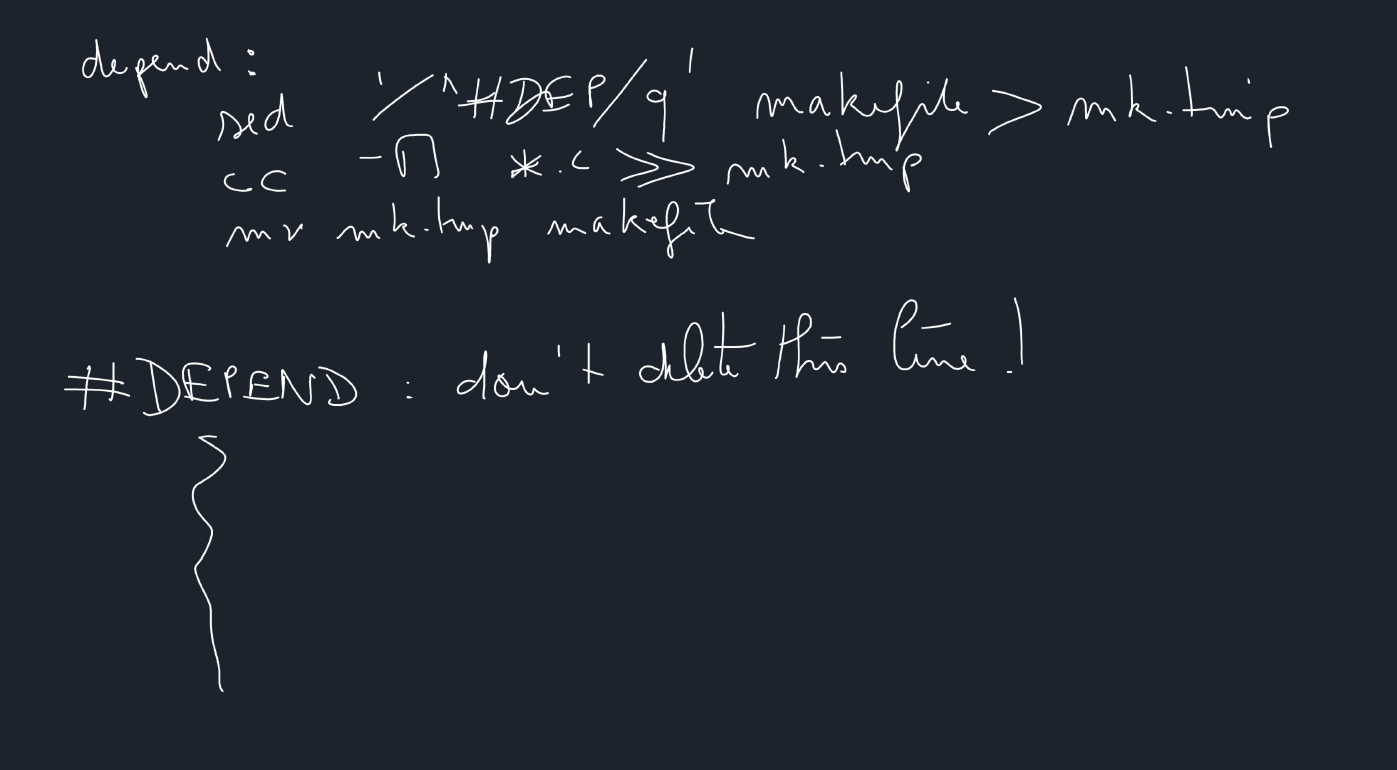 depend :
sed '/^#DEP/q' makefile > mk.tmp
cc -M *.c >> mk.tmp
mv mk.tmp makefile
#DEPEND : don't delete this line !